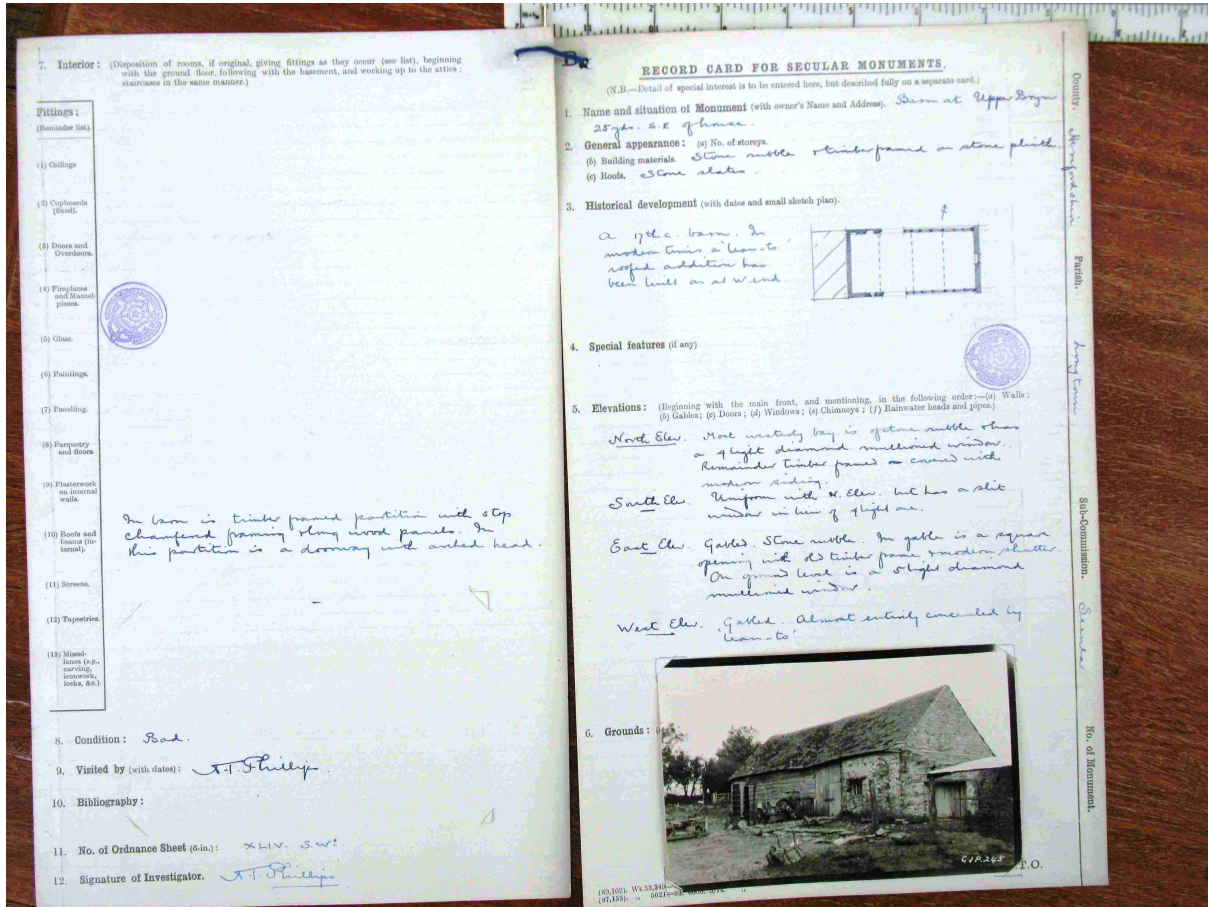 7. Interior: (Disposition of rooms, if original, giving fittings as they occur (see list), beginning
with the ground floor, following with the basement, and working up to the attics;
staircases in the same manner.)
Fittings:
(Reminder list).
(1) Ceilings
(2) Cupboards
(fixed).
(3) Doors and
Overdoors.
(4) Fireplaces
and Mantel-
pieces.
(5) Glass.
(6) Paintings.
(7) Panelling.
(8) Parquetry
and floors.
(9) Plasterwork
on internal
walls.
(10) Roofs and
beams (in-
ternal).
(11) Screens.
(12) Tapestries.
(13) Miscel-
lanea (e.g.,
carving,
ironwork,
locks, &c.).
In barn is timber framed partition with stop
chamfered framing & long wood panels. In
this partition is a doorway with arched head.
8. Condition: Bad.
9. Visited by (with dates): A.T. Phillips
10. Bibliography:
11. No. of Ordnance Sheet (6-in.): XLIV. S.W.
12. Signature of Investigator. A.T. Phillips
RECORD CARD FOR SECULAR MONUMENTS.
(N.B.—Detail of special interest is to be entered here, but described fully on a separate card.)
1. Name and situation of Monument (with owner's Name and Address). Barn at Upper Bryn
25 yds. S.E of house.
2. General appearance: (a) No. of storeys.
(b) Building materials. Stone rubble & timber framed on stone plinth.
(c) Roofs. Stone slates.
3. Historical development (with dates and small sketch plan).
A 17th c. barn. In
modern times a 'lean-to'
roofed addition has
been built on at W end.
4. Special features (if any)
5. Elevations: (Beginning with the main front, and mentioning, in the following order:—(a) Walls;
(b) Gables; (c) Doors; (d) Windows; (e) Chimneys; (f) Rainwater heads and pipes.)
North Elev. Most westerly bay is of stone rubble & has
a 4 light diamond mullioned window.
Remainder timber framed covered with
modern siding.
South Elev. Uniform with N. Elev. but has a slit
window in lieu of 4 light one.
East Elev. Gabled. Stone rubble. In gable is a square
opening with old timber frame & modern shutter.
On ground level is a 5 light diamond
mullioned window.
West Elev. Gabled. Almost entirely concealed by
'lean-to'
6. Grounds:
CJP.245
T.O.
(89,102). Wt.33,349
(97,153). " 5621
County. Herefordshire
Parish. Longtown
Sub-Commission. Secular
No. of Monument.